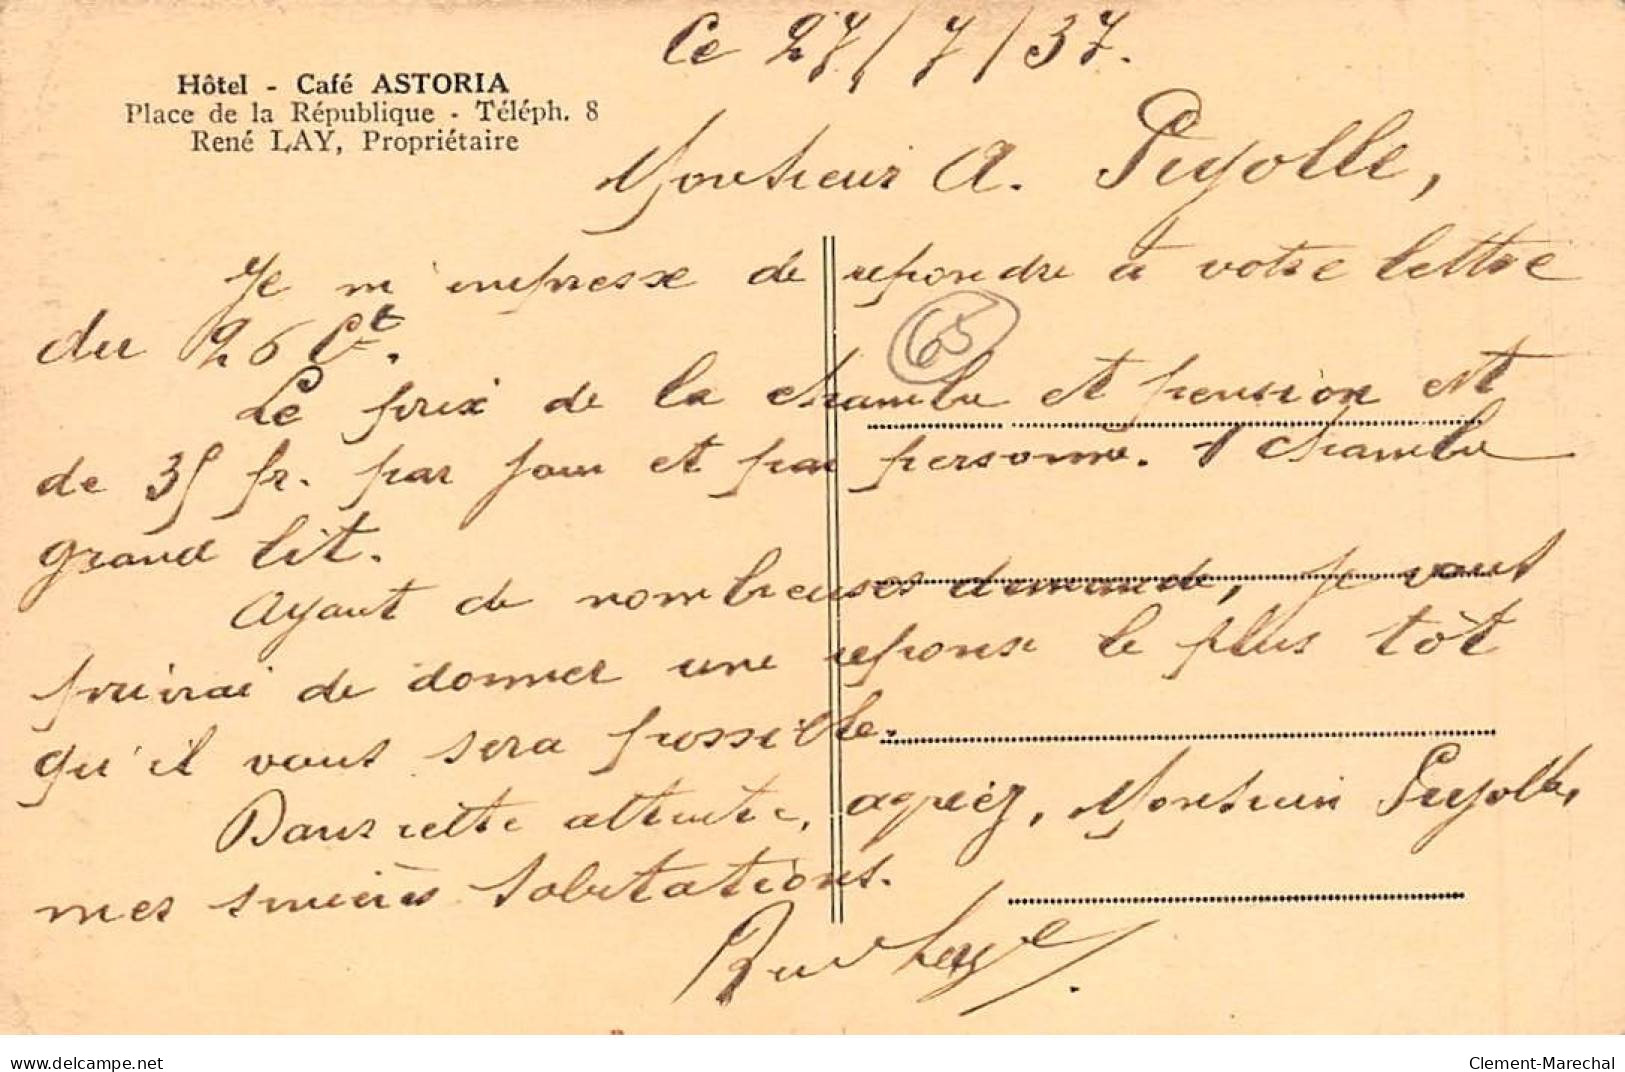 Ce 27/7/37.
Hôtel - Café ASTORIA
Place de la République - Téléph. 8
René LAY, Propriétaire
Monsieur A. Puyolle,
Je m'empresse de repondre à votre lettre
du 26 Ct.
65
Le prix de la chambre et pension est
de 35 fr. par jour et par personne. 1 chambre
grand lit.
Ayant de nombreuses demande, je vous
prierai de donner une reponse le plus tôt
qu'il vous sera possible.
Dans cette attente, agréez, Monsieur Puyolle,
mes sincères salutations.
René Lay
delcampe.net
Clement-Marechal